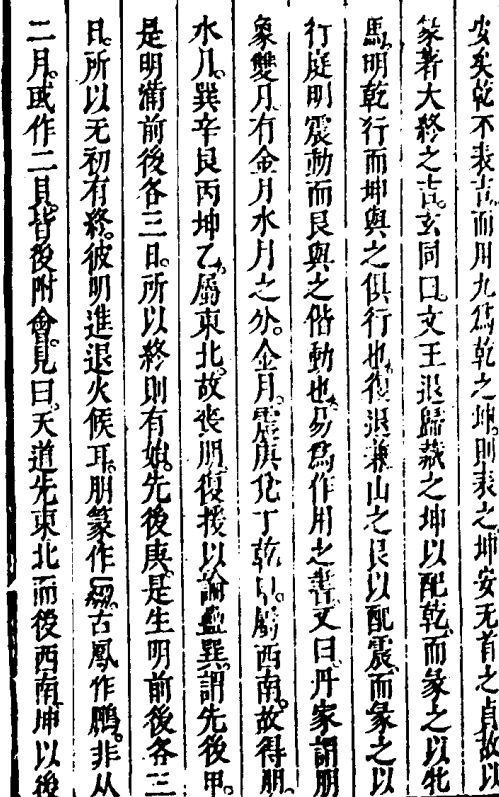 安矣乾不表吉而用九爲乾之坤則表之坤安无首之貞故以
彖著大終之吉玄同曰文王退歸藏之坤以配乾而彖之以牝
馬明乾行而坤與之俱行也復退兼山之艮以配震而彖之以
行庭明震動而艮與之偕動也易爲作用之書又曰丹家謂朋
象雙月有金月水月之分金月震庚兌丁乾甲屬西南故得朋
水月巽辛艮丙坤乙屬東北故喪朋復援以論蠱巽謂先後甲
是明滿前後各三日所以終則有始先後庚是生明前後各三
日所以无初有終彼明進退火候耳朋篆作古鳳作鵬非从
二月或作二貝皆後附會見曰天道先東北而後西南坤以後